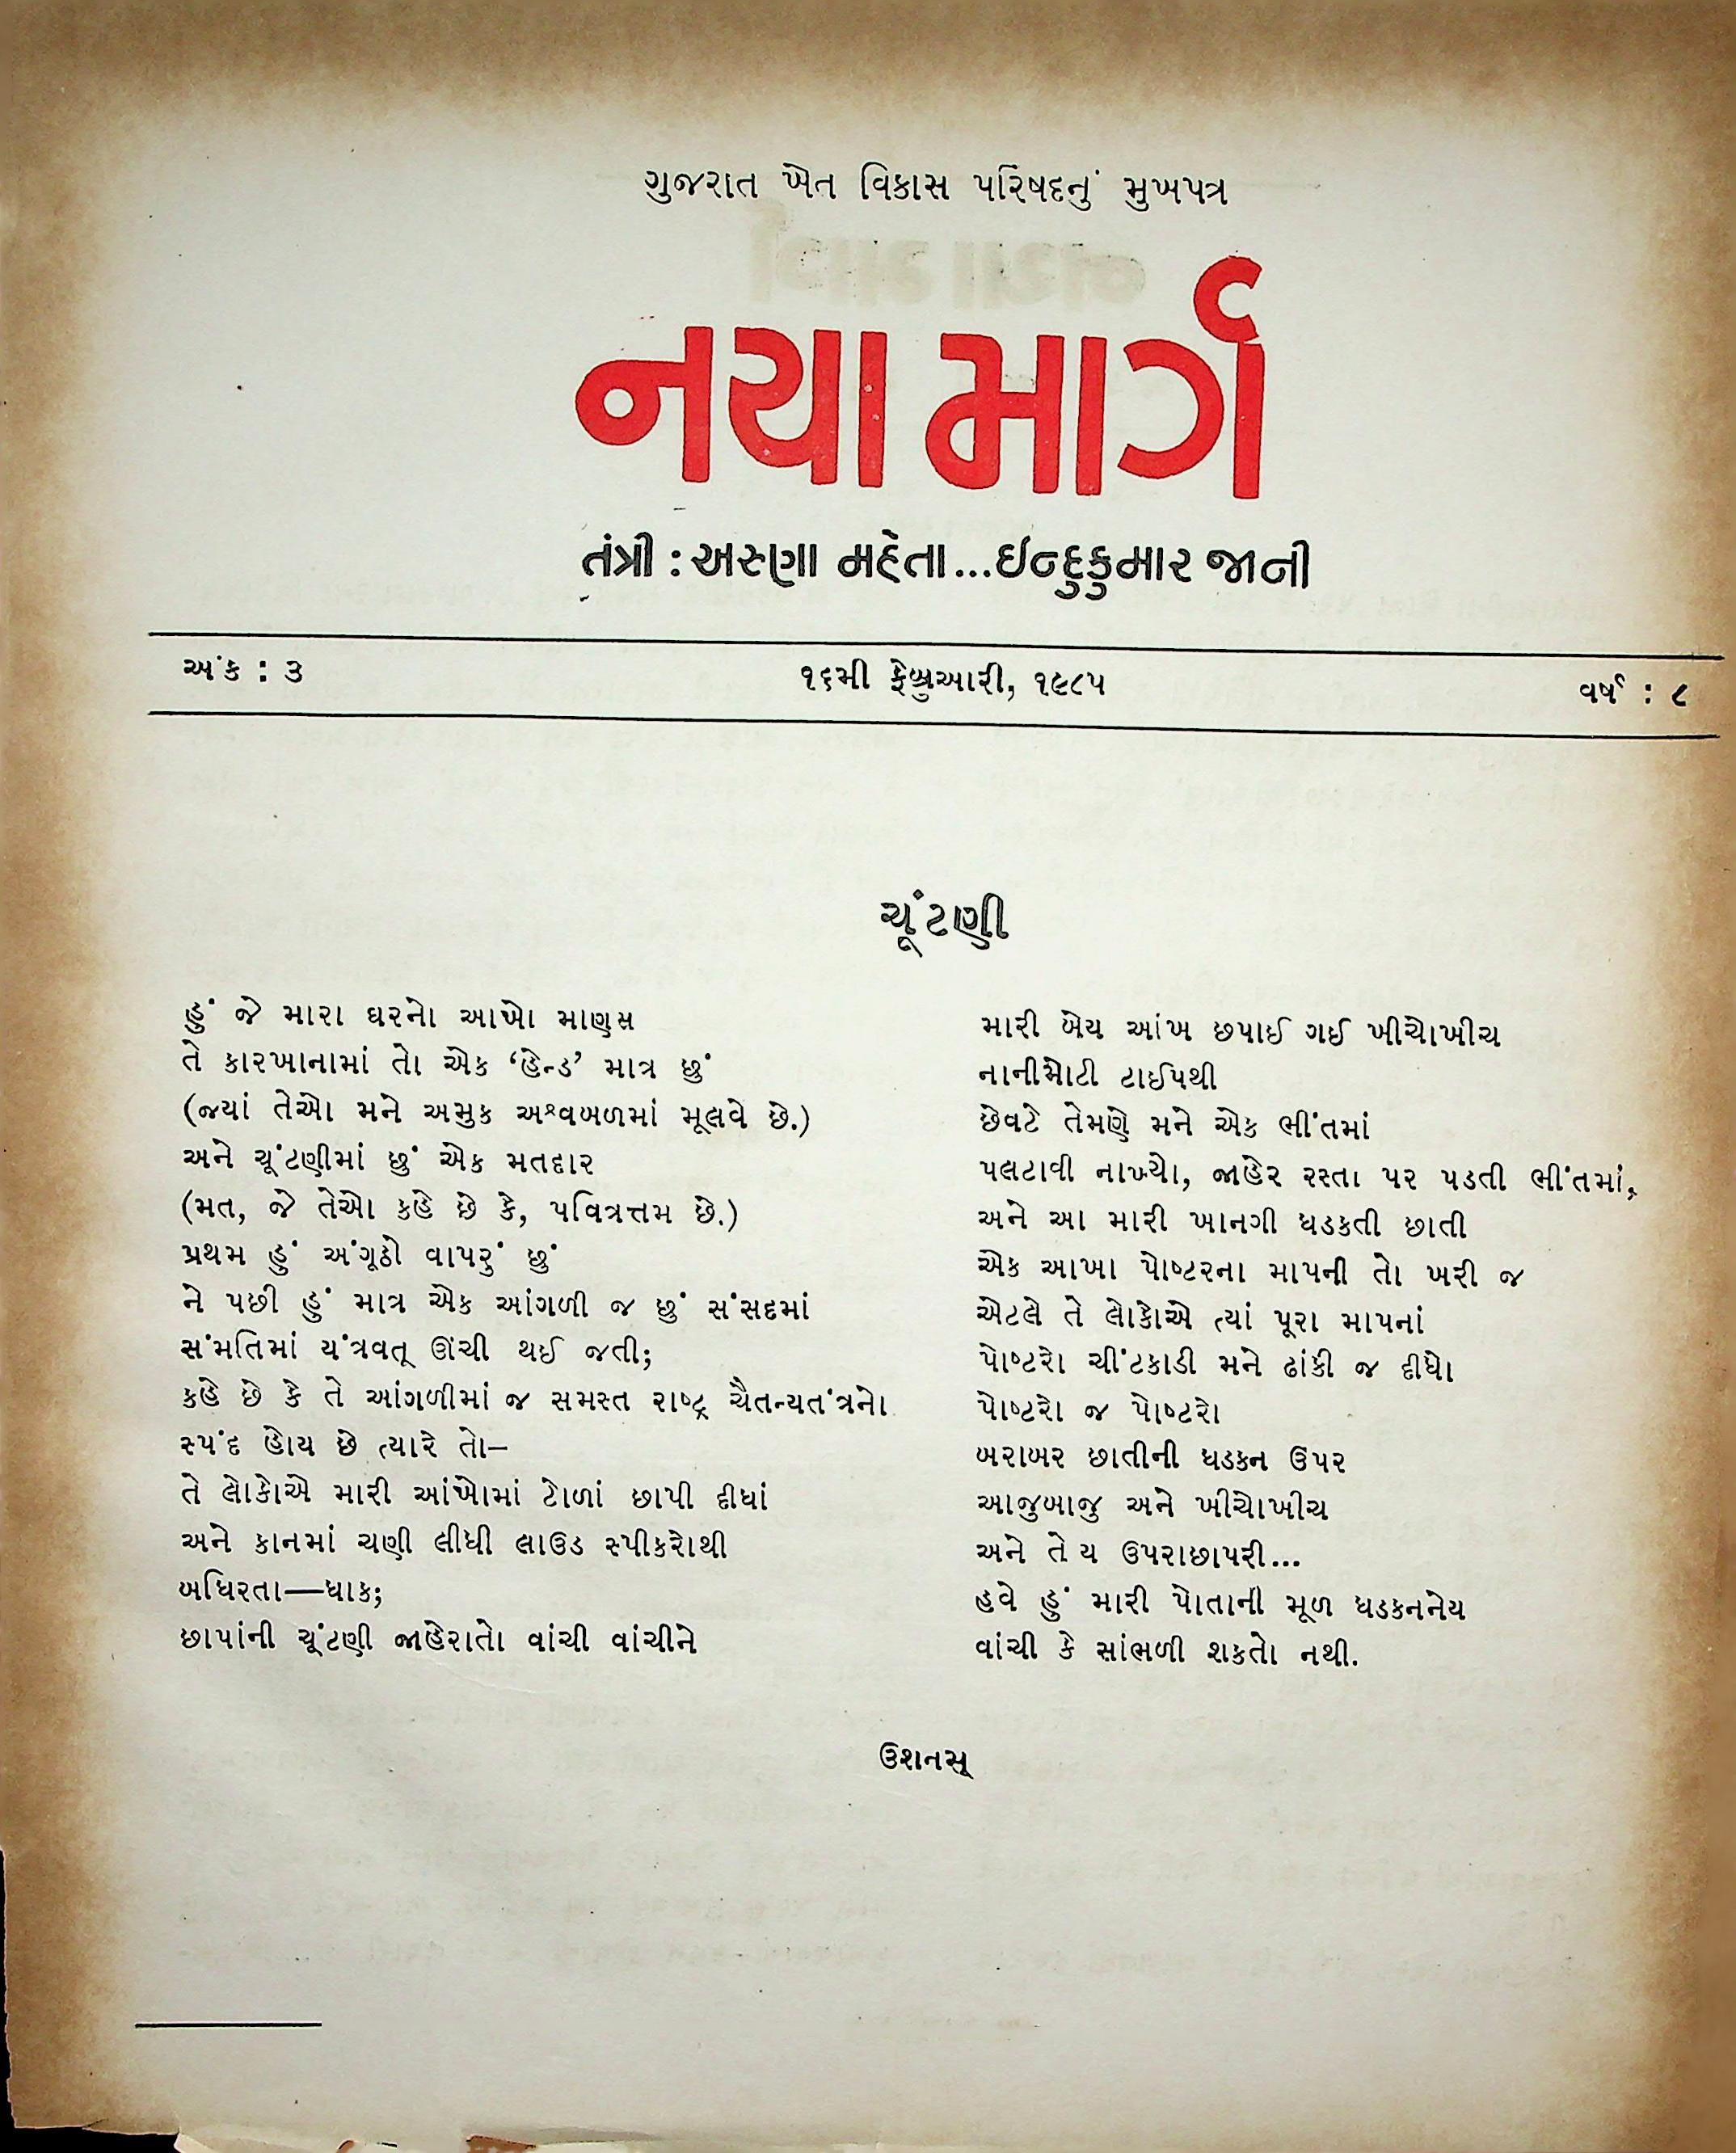 ગુજરાત ખેત વિકાસ પરિષદનું મુખપત્ર
નયા માર્ગ
તંત્રી : અરુણા મહેતા...ઇન્દુકુમાર જાની
અંક : ૩
૧૬મી ફેબ્રુઆરી, ૧૯૮૫
વર્ષ : ૮
ચૂંટણી
હું જે મારા ઘરનો આખો માણસ
તે કારખાનામાં તો એક ‘હેન્ડ’ માત્ર છું
(જ્યાં તેઓ મને અમુક અશ્વબળમાં મૂલવે છે.)
અને ચૂંટણીમાં છું એક મતદાર
(મત, જે તેઓ કહે છે કે, પવિત્રત્તમ છે.)
પ્રથમ હું અંગૂઠો વાપરું છું
ને પછી હું માત્ર એક આંગળી જ છું સંસદમાં
સંમતિમાં યંત્રવત્ ઊંચી થઈ જતી;
કહે છે કે તે આંગળીમાં જ સમસ્ત રાષ્ટ્ર ચૈતન્યતંત્રનો
સ્પંદ હોય છે ત્યારે તો–
તે લોકોએ મારી આંખોમાં ટોળાં છાપી દીધાં
અને કાનમાં ચણી લીધી લાઉડ સ્પીકરોથી
બધિરતા—ધાક;
છાપાંની ચૂંટણી જાહેરાતો વાંચી વાંચીને
મારી બેય આંખ છપાઈ ગઈ ખીચોખીચ
નાનીમોટી ટાઈપથી
છેવટે તેમણે મને એક ભીંતમાં
પલટાવી નાખ્યો, જાહેર રસ્તા પર પડતી ભીંતમાં,
અને આ મારી ખાનગી ધડકતી છાતી
એક આખા પોષ્ટરના માપની તો ખરી જ
એટલે તે લોકોએ ત્યાં પૂરા માપનાં
પોષ્ટરો ચીંટકાડી મને ઢાંકી જ દીધો
પોષ્ટરો જ પોષ્ટરો
બરાબર છાતીની ધડકન ઉપર
આજુબાજુ અને ખીચોખીચ
અને તે ય ઉપરાછાપરી...
હવે હું મારી પોતાની મૂળ ધડકનનેય
વાંચી કે સાંભળી શકતો નથી.
ઉશનસ્